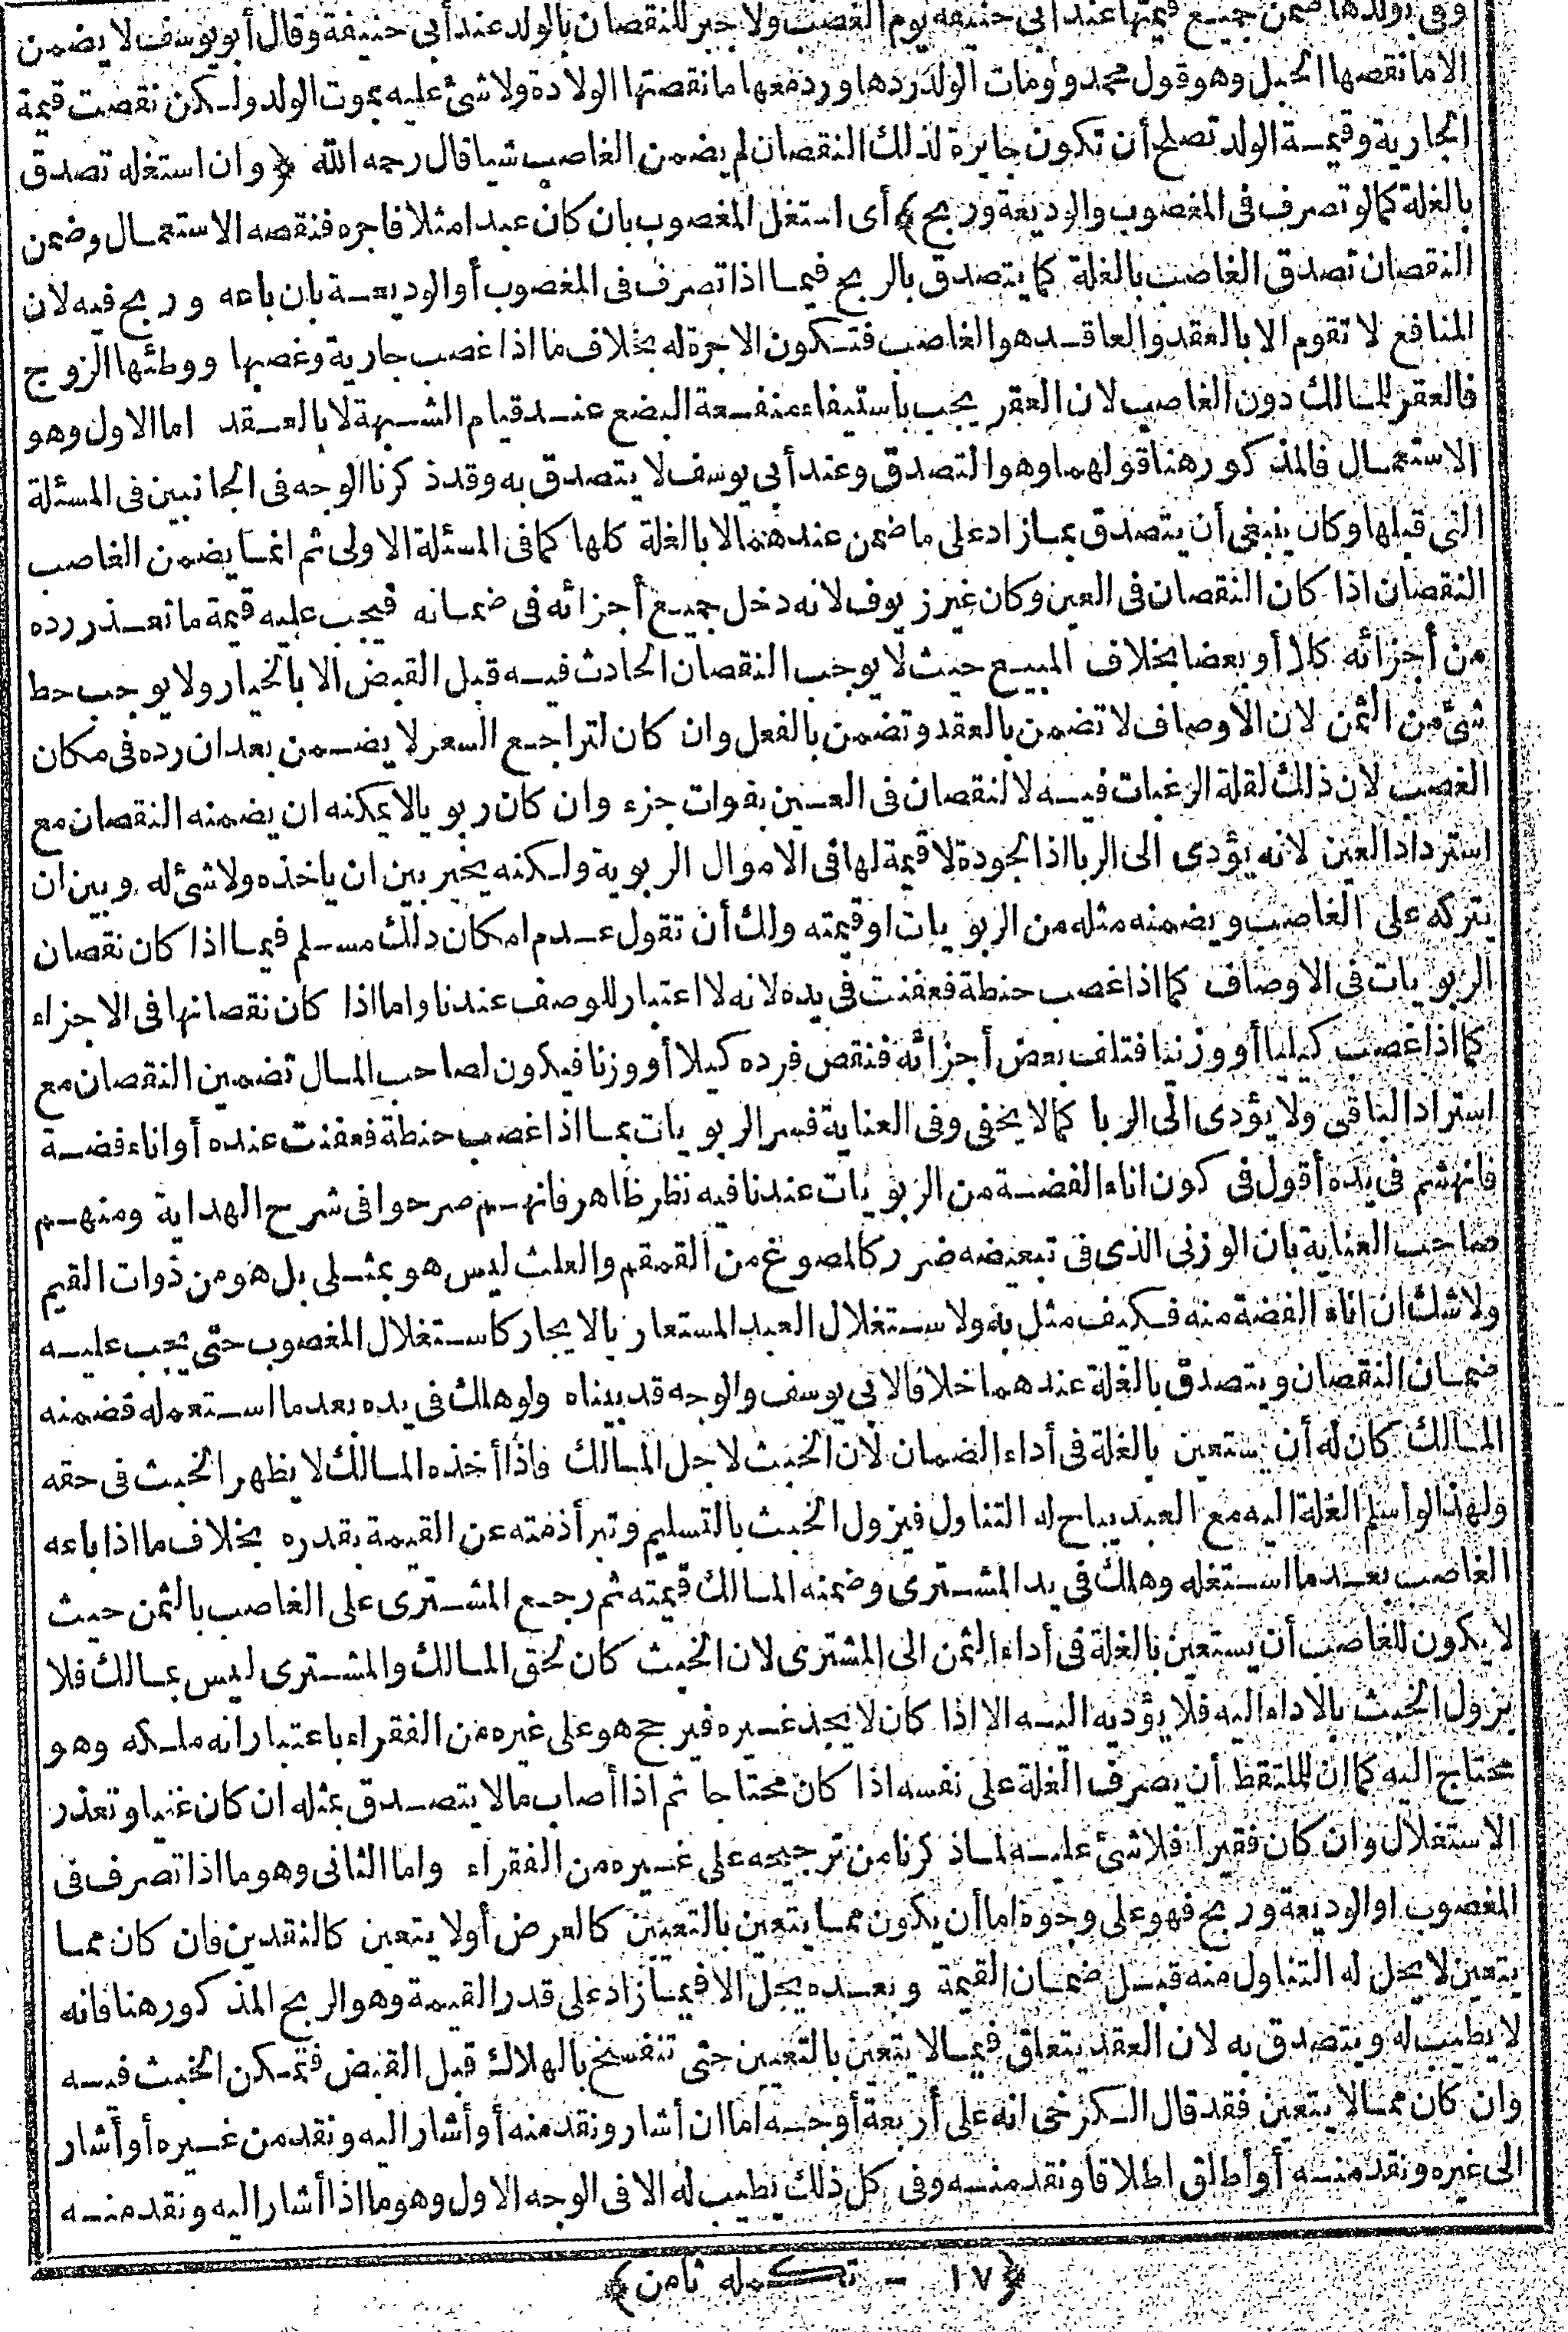 وفى بولدها ضمن جميع قيمتها عند أبى حنيفة يوم الغصب ولا جبر للنقصان بالولد عند أبى حنيفة وقال أبو يوسف لا يضمن
الا ما نقصها الحبل وهو قول محمد ولو مات الولد ردها ورد معها ما نقصتها الولادة ولا شئ عليه بموت الولد ولكن نقصت قيمة
الجارية وقيمة الولد تصلح أن تكون جابرة لذلك النقصان لم يضمن الغاصب شيا قال رحمه الله ﴿وان استغله تصدق
بالغلة كما لو تصرف فى المغصوب والوديعة وربح﴾ أى استغل المغصوب بان كان عبدا مثلا فاجره فنقصه الاستعمال وضمن
النقصان تصدق الغاصب بالغلة كما يتصدق بالربح فيما اذا تصرف فى المغصوب أو الوديعة بان باعه وربح فيه لان
المنافع لا تقوم الا بالعقد والعاقد هو الغاصب فتكون الاجرة له بخلاف ما اذا غصب جارية وغصبها ووطئها الزوج
فالعقر للمالك دون الغاصب لان العقر يجب باستيفاء منفعة البضع عند قيام الشبهة لا بالعقد اما الاول وهو
الاستعمال فالمذكور هنا قولهما وهو التصدق وعند أبى يوسف لا يتصدق به وقد ذكرنا الوجه فى الجانبين فى المسئلة
التى قبلها وكان ينبغى أن يتصدق بما زاد على ما ضمن عندهما لا بالغلة كلها كما فى المسئلة الاولى ثم انما يضمن الغاصب
النقصان اذا كان النقصان فى العين وكان غير زيوف لانه دخل جميع أجزائه فى ضمانه فيجب عليه قيمة ما تعذر رده
من أجزائه كلا أو بعضا بخلاف المبيع حيث لا يوجب النقصان الحادث فيه قبل القبض الا بالخيار ولا يوجب حط
شئ من الثمن لان الأوصاف لا تضمن بالعقد وتضمن بالفعل وان كان لتراجع السعر لا يضمن بعد ان رده فى مكان
الغصب لان ذلك لقلة الرغبات فيه لا لنقصان فى العين بفوات جزء وان كان ربويا لا يمكنه ان يضمنه النقصان مع
استرداد العين لانه يؤدى الى الربا اذ الجودة لا قيمة لها فى الاموال الربوية ولكنه يخير بين ان ياخذه ولا شئ له وبين ان
يتركه على الغاصب ويضمنه مثله من الربويات او قيمته ولك أن تقول عدم امكان ذلك مسلم فيما اذا كان نقصان
الربويات فى الاوصاف كما اذا غصب حنطة فعفنت فى يده لانه لا اعتبار للوصف عندنا واما اذا كان نقصانها فى الاجزاء
كما اذا غصب كيليا أو وزنيا فتلف بعض أجزائه فنقص فرده كيلا أو وزنا فيكون لصاحب المال تضمين النقصان مع
استراد الباقى ولا يؤدى الى الربا كما لا يخفى وفى العناية فسر الربويات بما اذا غصب حنطة فعفنت عنده أو اناء فضة
فانهشم فى يده أقول فى كون اناء الفضة من الربويات عندنا فيه نظر ظاهر فانهم صرحوا فى شرح الهداية ومنهم
صاحب العناية بان الوزنى الذى فى تبعيضه ضرر كالمصوغ من القمقم والعلث ليس هو بمثلى بل هو من ذوات القيم
ولا شك ان اناء الفضة منه فكيف مثل به ولا ستغلال العبد المستعار بالايجار كاستغلال المغصوب حتى يجب عليه
ضمان النقصان ويتصدق بالغلة عندهما خلافا لابى يوسف والوجه قد بيناه ولو هلك فى يده بعد ما استعمله فضمنه
المالك كان له أن يستعين بالغلة فى أداء الضمان لان الخبث لاجل المالك فاذا أخذه المالك لا يظهر الخبث فى حقه
ولهذا لو أسلم الغلة اليه مع العبد يباح له التناول فيزول الخبث بالتسليم وتبرأ ذمته عن القيمة بقدره بخلاف ما اذا باعه
الغاصب بعد ما استغله وهلك فى يد المشترى وضمنه المالك قيمته ثم رجع المشترى على الغاصب بالثمن حيث
لا يكون للغاصب أن يستعين بالغلة فى أداء الثمن الى المشترى لان الخبث كان لحق المالك والمشترى ليس بمالك فلا
يزول الخبث بالاداء اليه فلا يؤديه اليه الا اذا كان لا يجد غيره فيرجح هو على غيره من الفقراء باعتبار انه ملكه وهو
محتاج اليه كما ان للملتقط أن يصرف الغلة على نفسه اذا كان محتاجا ثم اذا أصاب مالا يتصدق بمثله ان كان غنيا وتعذر
الاستغلال وان كان فقيرا فلا شئ عليه لما ذكرنا من ترجيحه على غيره من الفقراء واما الثانى وهو ما اذا تصرف فى
المغصوب او الوديعة وربح فهو على وجوه اما أن يكون مما يتعين بالتعيين كالعرض أو لا يتعين كالنقدين فان كان مما
يتعين لا يحل له التناول منه قبل ضمان القيمة وبعده يحل الا فيما زاد على قدر القيمة وهو الربح المذكور هنا فانه
لا يطيب له ويتصدق به لان العقد يتعلق فيما لا يتعين بالتعيين حتى تنفسخ بالهلاك قبل القبض فتمكن الخبث فيه
وان كان مما لا يتعين فقد قال الكرخى انه على أربعة أوجه اما ان أشار ونقد منه أو أشار اليه ونقد من غيره أو أشار
الى غيره ونقد منه أو أطلق اطلاقا ونقد منه وفى كل ذلك يطيب له الا فى الوجه الاول وهو ما اذا أشار اليه ونقد منه
﴿١٧ - تكمله ثامن﴾